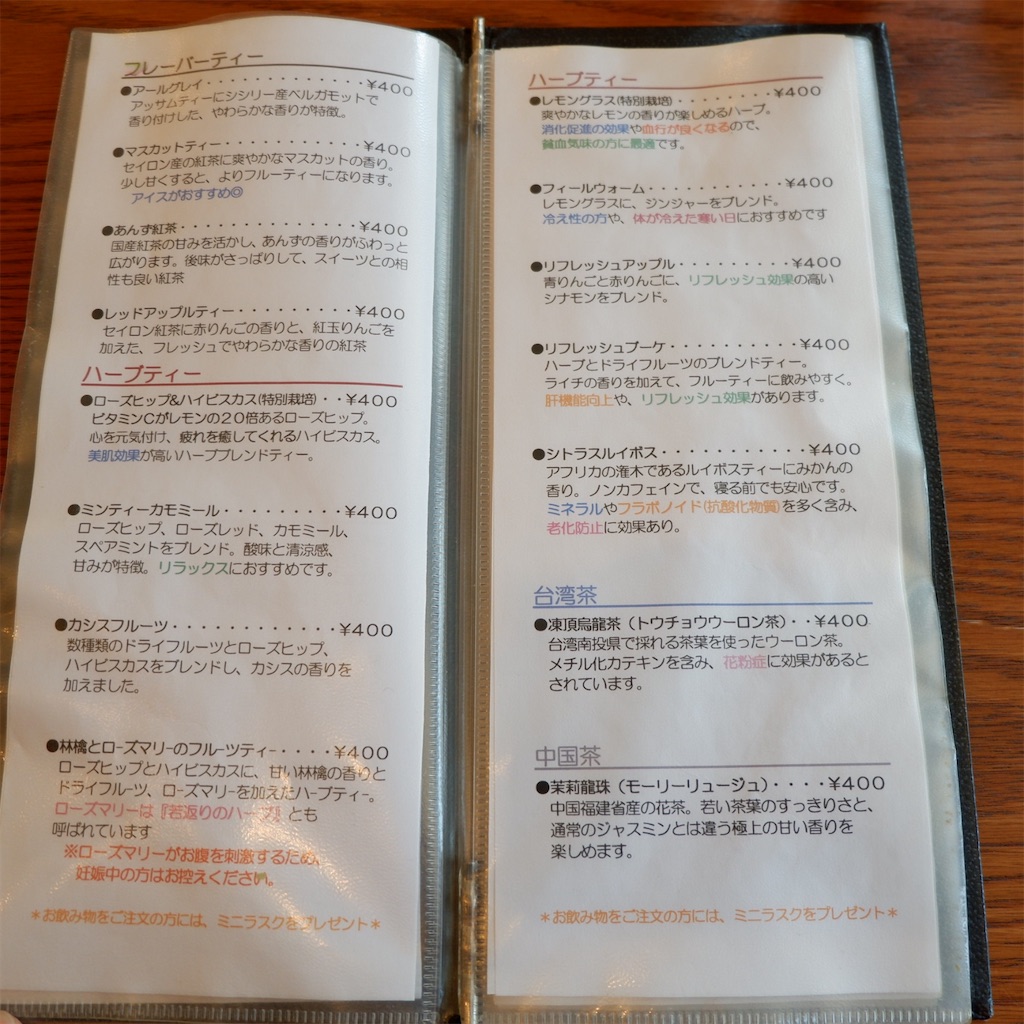 フレーバーティー
●アールグレイ・・・・・・・・・・・・・・¥400
アッサムティーにシシリー産ベルガモットで
香り付けした、やわらかな香りが特徴。
●マスカットティー・・・・・・・・・・・¥400
セイロン産の紅茶に爽やかなマスカットの香り。
少し甘くすると、よりフルーティーになります。
アイスがおすすめ◎
●あんず紅茶・・・・・・・・・・・・・・¥400
国産紅茶の甘みを活かし、あんずの香りがふわっと
広がります。後味がさっぱりして、スイーツとの相
性も良い紅茶
●レッドアップルティー・・・・・・・・・¥400
セイロン紅茶に赤りんごの香りと、紅玉りんごを
加えた、フレッシュでやわらかな香りの紅茶
ハーブティー
●ローズヒップ&ハイビスカス(特別栽培)・・¥400
ビタミンCがレモンの20倍あるローズヒップ。
心を元気付け、疲れを癒してくれるハイビスカス。
美肌効果が高いハーブブレンドティー。
●ミンティーカモミール・・・・・・・・・¥400
ローズヒップ、ローズレッド、カモミール、
スペアミントをブレンド。酸味と清涼感、
甘みが特徴。リラックスにおすすめです。
●カシスフルーツ・・・・・・・・・・・・¥400
数種類のドライフルーツとローズヒップ、
ハイビスカスをブレンドし、カシスの香りを
加えました。
●林檎とローズマリーのフルーツティー・・・・¥400
ローズヒップとハイビスカスに、甘い林檎の香りと
ドライフルーツ、ローズマリーを加えたハーブティー。
ローズマリーは『若返りのハーブ』とも
呼ばれています
※ローズマリーがお腹を刺激するため、
妊娠中の方はお控えください。
＊お飲み物をご注文の方には、ミニラスクをプレゼント＊
ハーブティー
●レモングラス(特別栽培)・・・・・・・・¥400
爽やかなレモンの香りが楽しめるハーブ。
消化促進の効果や血行が良くなるので、
貧血気味の方に最適です。
●フィールウォーム・・・・・・・・・・・¥400
レモングラスに、ジンジャーをブレンド。
冷え性の方や、体が冷えた寒い日におすすめです
●リフレッシュアップル・・・・・・・・・¥400
青りんごと赤りんごに、リフレッシュ効果の高い
シナモンをブレンド。
●リフレッシュブーケ・・・・・・・・・・¥400
ハーブとドライフルーツのブレンドティー。
ライチの香りを加えて、フルーティーに飲みやすく。
肝機能向上や、リフレッシュ効果があります。
●シトラスルイボス・・・・・・・・・・・¥400
アフリカの潅木であるルイボスティーにみかんの
香り。ノンカフェインで、寝る前でも安心です。
ミネラルやフラボノイド(抗酸化物質)を多く含み、
老化防止に効果あり。
台湾茶
●凍頂烏龍茶（トウチョウウーロン茶）・・¥400
台湾南投県で採れる茶葉を使ったウーロン茶。
メチル化カテキンを含み、花粉症に効果があると
されています。
中国茶
●茉莉龍珠（モーリーリュージュ）・・・・¥400
中国福建省産の花茶。若い茶葉のすっきりさと、
通常のジャスミンとは違う極上の甘い香りを
楽しめます。
＊お飲み物をご注文の方には、ミニラスクをプレゼント＊